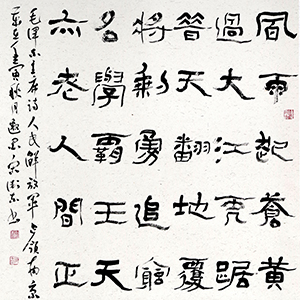 風雨起蒼黃
過大江虎踞
昔天翻地覆
將剩勇追窮
名學霸王天
亦老人間正
毛澤东主席詩人民解放軍占領南京
寅秋月